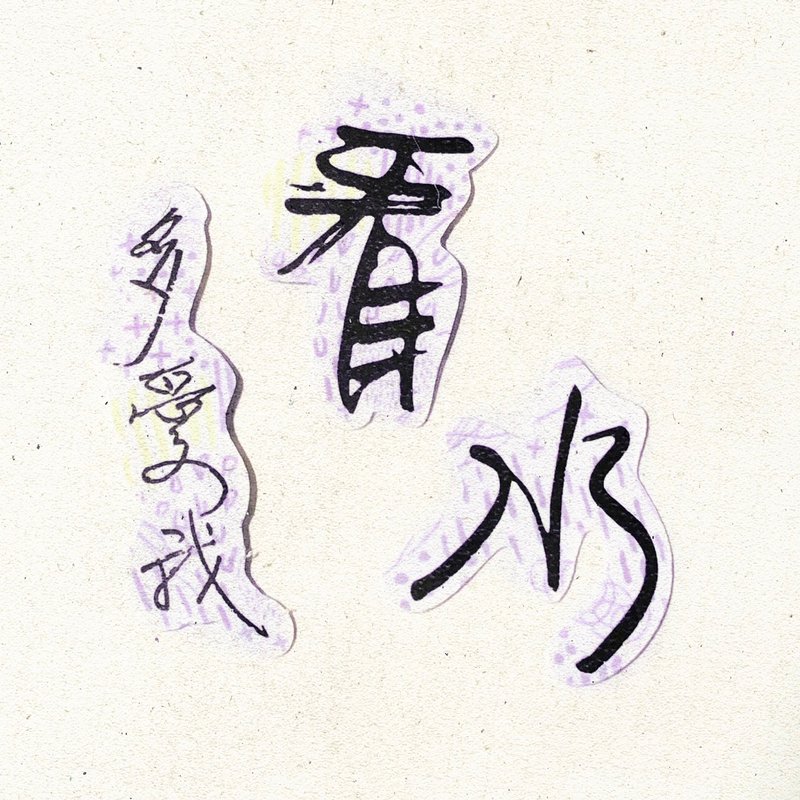 看水
多爱我